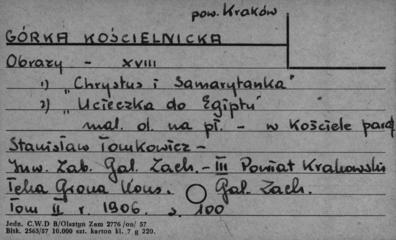 pow. Kraków
GÓRKA KOŚCIELNICKA
Obrazy - XVIII
1) „Chrystus i Samarytanka"
2) „Ucieczka do Egiptu"
mal. ol. na pł. - w Kościele paraf
Stanisław Tomkowicz -
Inw. Zab. Gal. Zach. - III Powiat Krakowski
Teka Grona Kons. Gal. Zach.
Tom II r. 1906. s. 100
Jedn. C.W.D B/Olsztyn Zam 2776/on/57
Blsk. 2563/57 10.000 szt. karton kl. 7 g 220.